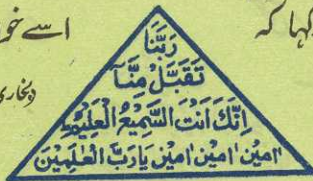 کہا کہ
رَبَّنَا
تَقَبَّلْ مِنَّا
اِنَّكَ اَنْتَ السَّمِيْعُ الْعَلِيْمُ
اٰمِيْن اٰمِيْن اٰمِيْن يَارَبَّ الْعٰلَمِيْنَ
اسے